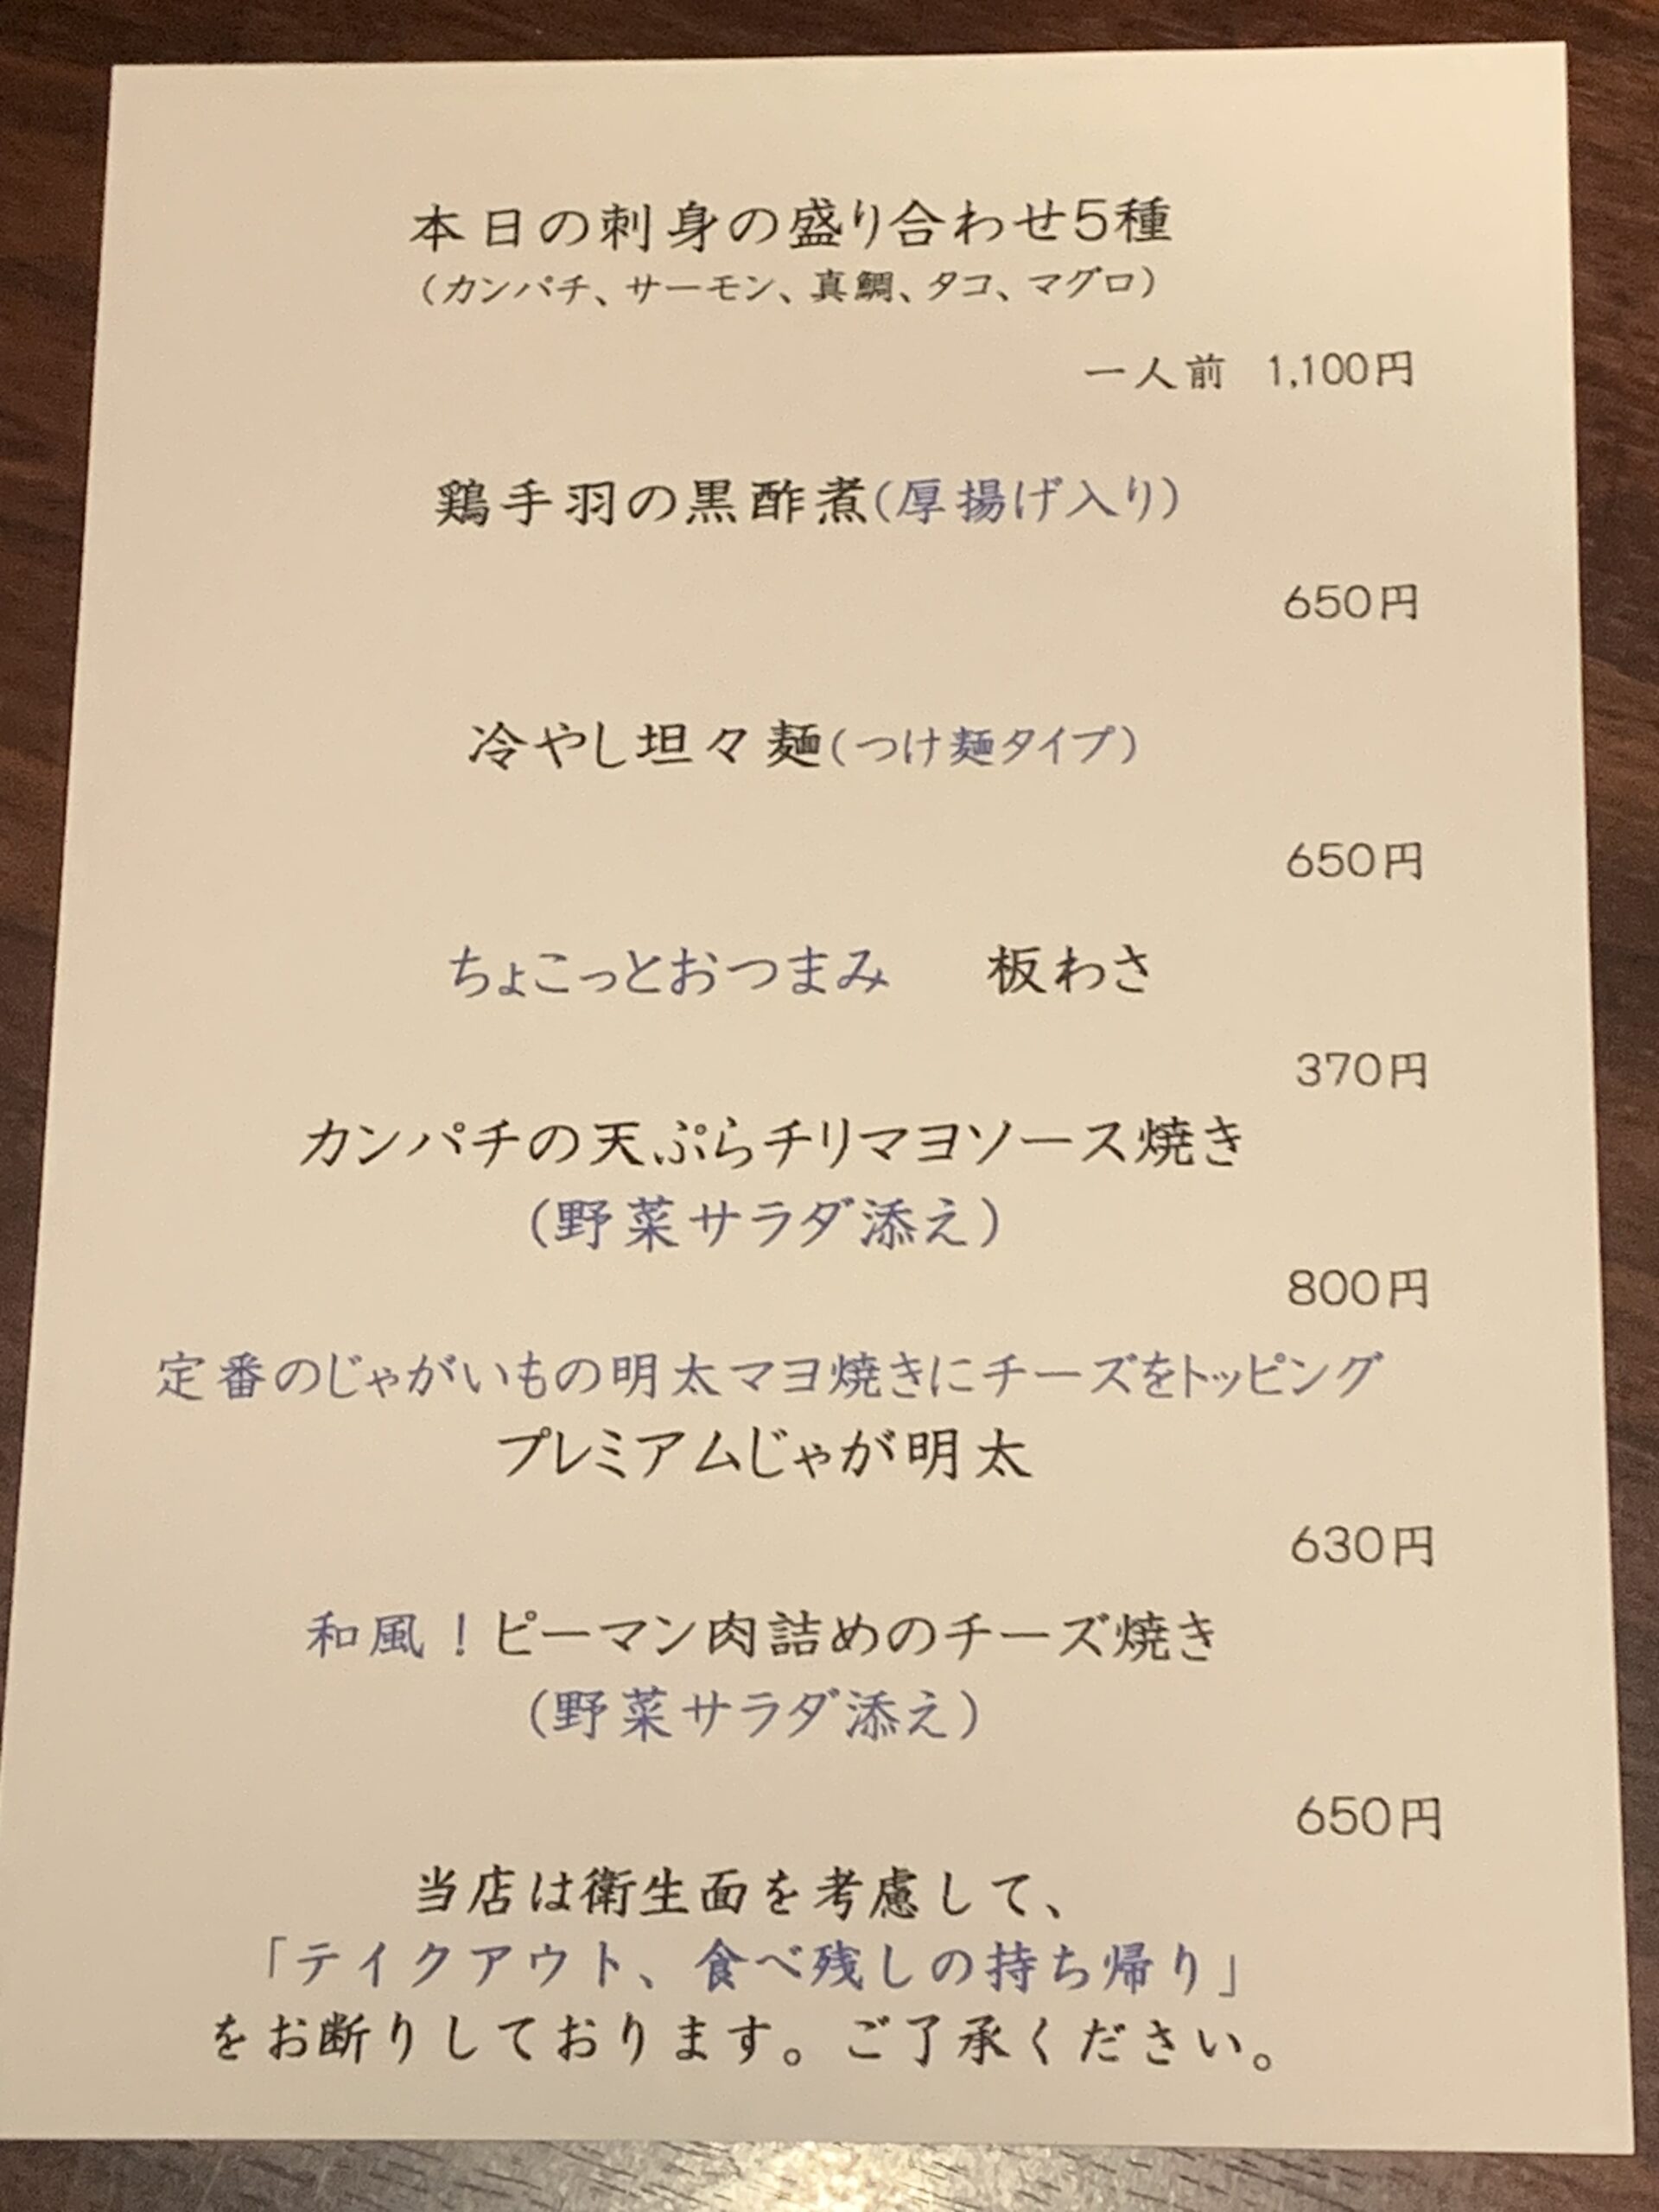 本日の刺身の盛り合わせ5種
（カンパチ、サーモン、真鯛、タコ、マグロ）
一人前 1,100円
鶏手羽の黒酢煮（厚揚げ入り）
650円
冷やし坦々麺（つけ麺タイプ）
650円
ちょこっとおつまみ 板わさ
370円
カンパチの天ぷらチリマヨソース焼き
（野菜サラダ添え）
800円
定番のじゃがいもの明太マヨ焼きにチーズをトッピング
プレミアムじゃが明太
630円
和風！ピーマン肉詰めのチーズ焼き
（野菜サラダ添え）
650円
当店は衛生面を考慮して、
「テイクアウト、食べ残しの持ち帰り」
をお断りしております。ご了承ください。